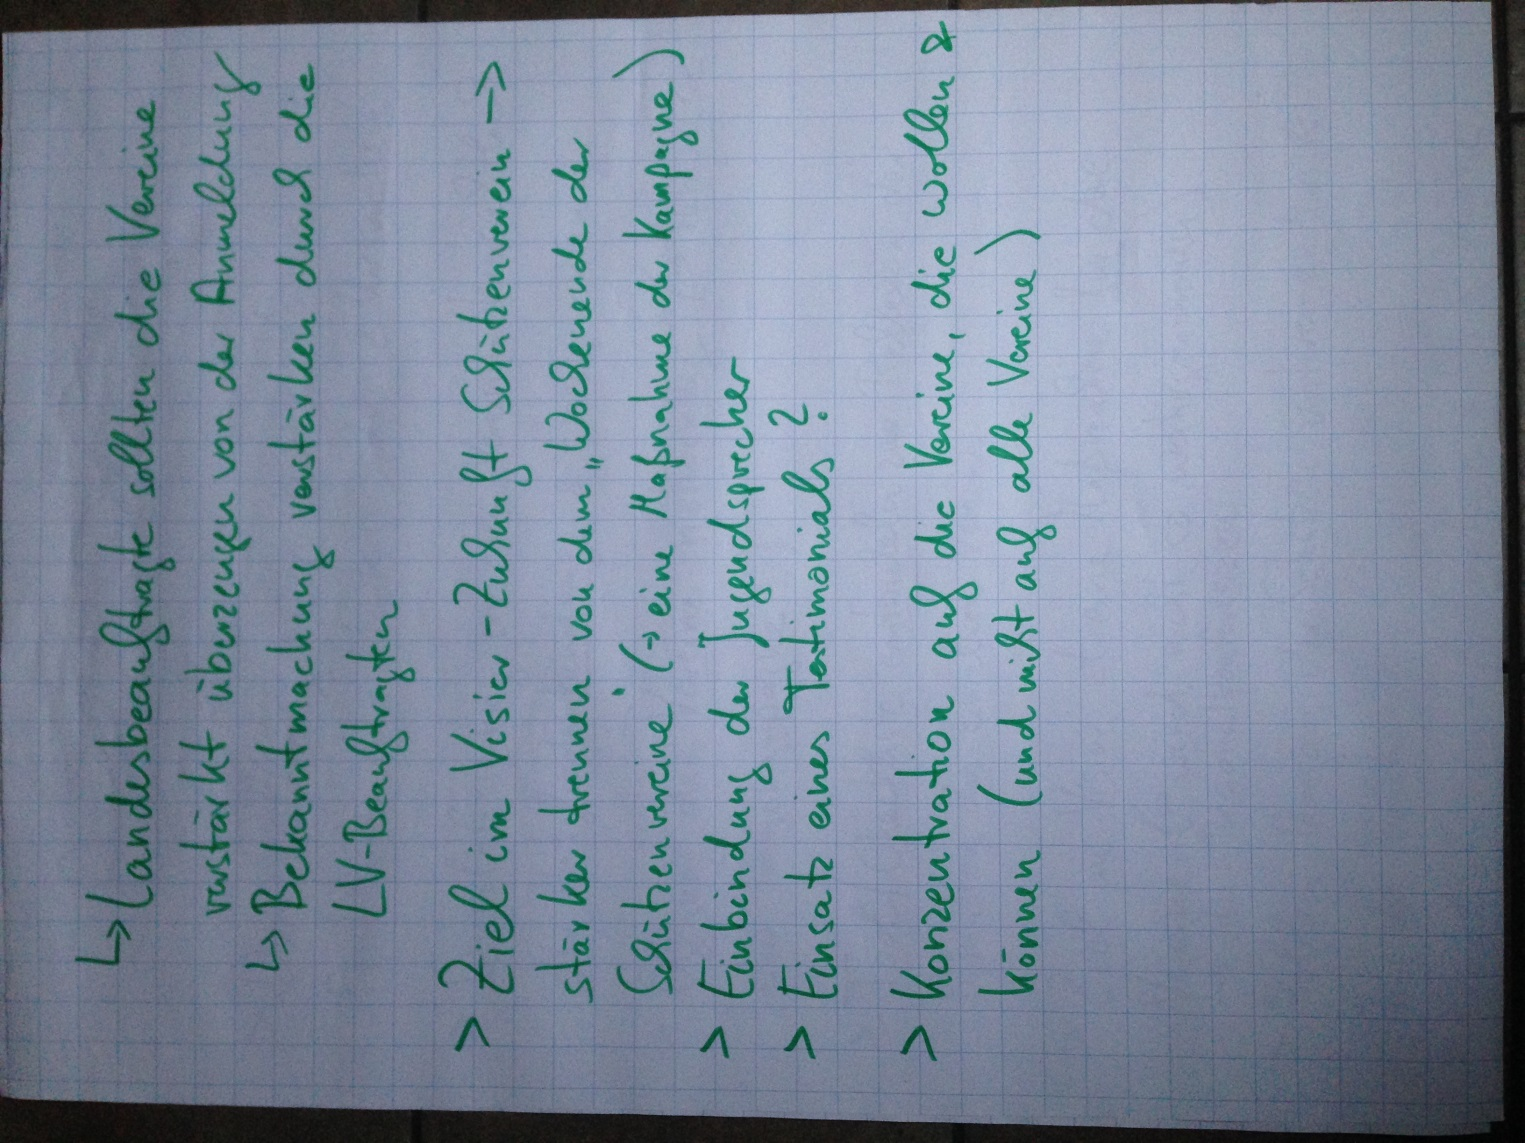 ↳ Landesbeauftragte sollten die Vereine
verstärkt überzeugen von der Anmeldung
↳ Bekanntmachung verstärken durch die
LV-Beauftragten
> Ziel im Visier - Zukunft Schützenverein →
stärker trennen von dem „Wochenende der
Schützenvereine" (→ eine Maßnahme der Kampagne)
> Einbindung der Jugendsprecher
> Einsatz eines Testimonials?
> Konzentration auf die Vereine, die wollen &
können (und nicht auf alle Vereine)